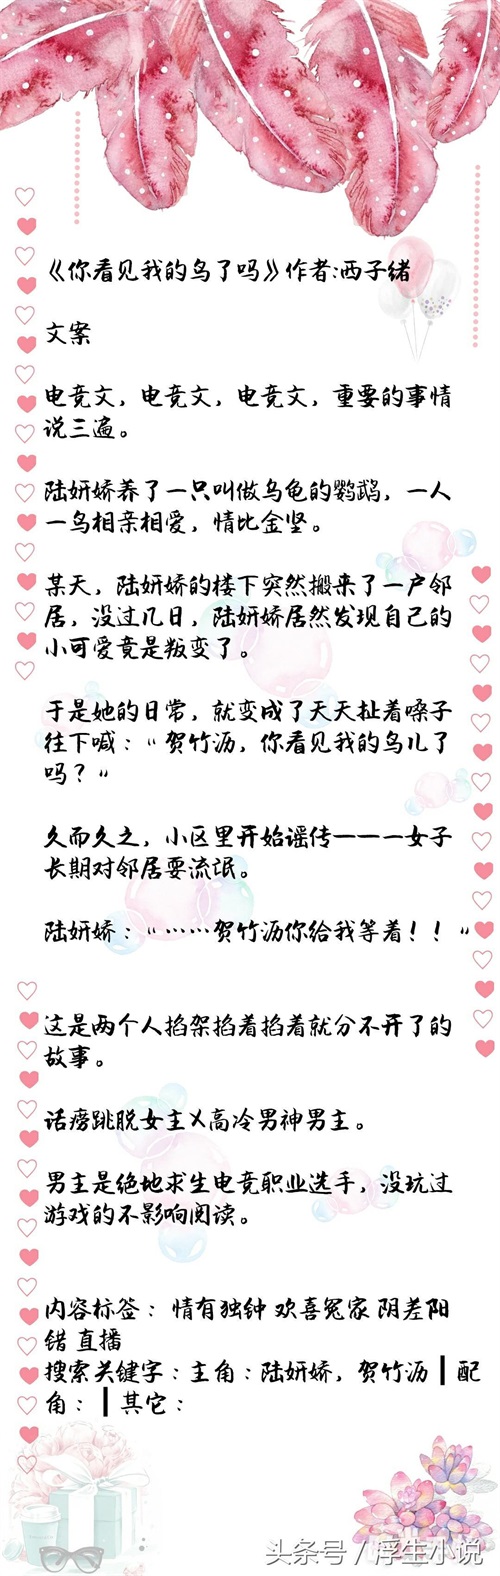 《你看见我的鸟了吗》作者:西子绪
文案
电竞文，电竞文，电竞文，重要的事情
说三遍。
陆妍娇养了一只叫做乌龟的鹦鹉，一人
一鸟相亲相爱，情比金坚。
某天，陆妍娇的楼下突然搬来了一户邻
居，没过几日，陆妍娇居然发现自己的
小可爱竟是叛变了。
于是她的日常，就变成了天天扯着嗓子
往下喊：“贺竹沥，你看见我的鸟儿了
吗？”
久而久之，小区里开始谣传——一女子
长期对邻居耍流氓。
陆妍娇：“……贺竹沥你给我等着！！”
这是两个人掐架掐着掐着就分不开了的
故事。
话痨跳脱女主X高冷男神男主。
男主是绝地求生电竞职业选手，没玩过
游戏的不影响阅读。
内容标签： 情有独钟 欢喜冤家 阴差阳
错 直播
搜索关键字：主角：陆妍娇，贺竹沥┃配
角：┃其它：
头条号/浮生小说